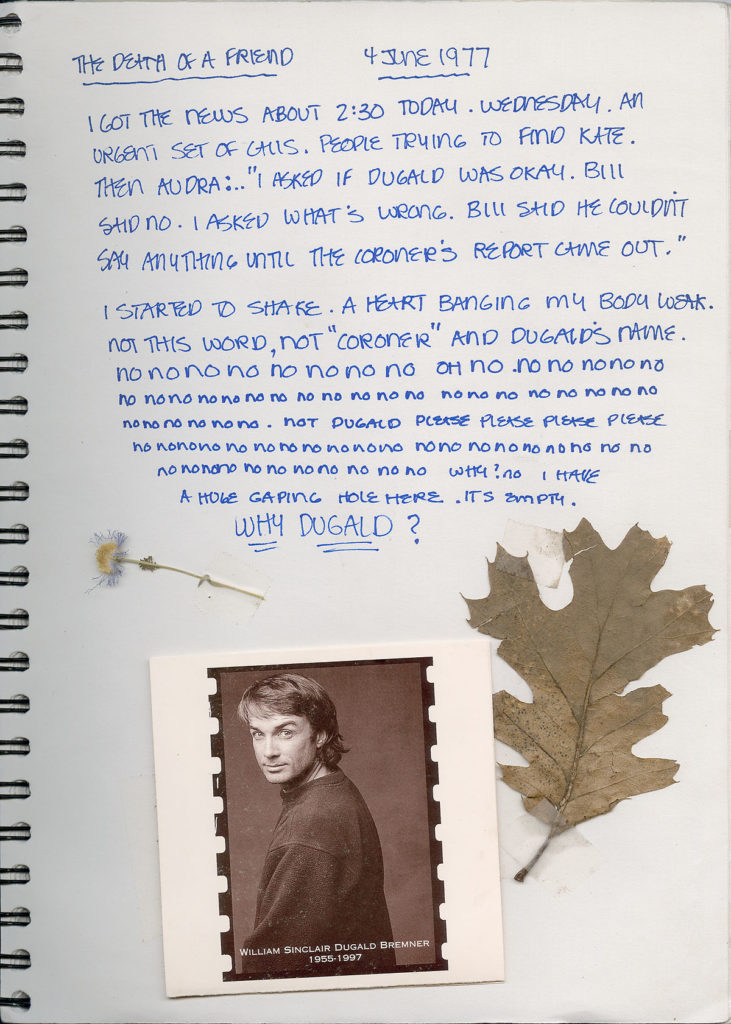 THE DEATH OF A FRIEND 4 JUNE 1977
I GOT THE NEWS ABOUT 2:30 TODAY. WEDNESDAY. AN
URGENT SET OF CALLS. PEOPLE TRYING TO FIND KATE.
THEN AUDRA:.."I ASKED IF DUGALD WAS OKAY. BILL
SAID NO. I ASKED WHAT'S WRONG. BILL SAID HE COULDN'T
SAY ANYTHING UNTIL THE CORONER'S REPORT CAME OUT."
I STARTED TO SHAKE. A HEART BANGING MY BODY WEAK.
NOT THIS WORD, NOT "CORONER" AND DUGALD'S NAME.
NO NO NO NO NO NO NO NO OH NO. NO NO NO NO NO
NO NO NO NO NO NO NO NO NO NO NO NO NO NO NO NO NO NO NO NO
NO NO NO NO NO NO. NOT DUGALD PLEASE PLEASE PLEASE PLEASE
NO NO NO NO NO NO NO NO NO NO NO NO NO NO NO NO NO NO NO NO NO
NO NO NO NO NO NO NO NO NO NO NO WHY? NO I HAVE
A HUGE GAPING HOLE HERE. IT'S EMPTY.
WHY DUGALD?
WILLIAM SINCLAIR DUGALD BREMNER
1955-1997